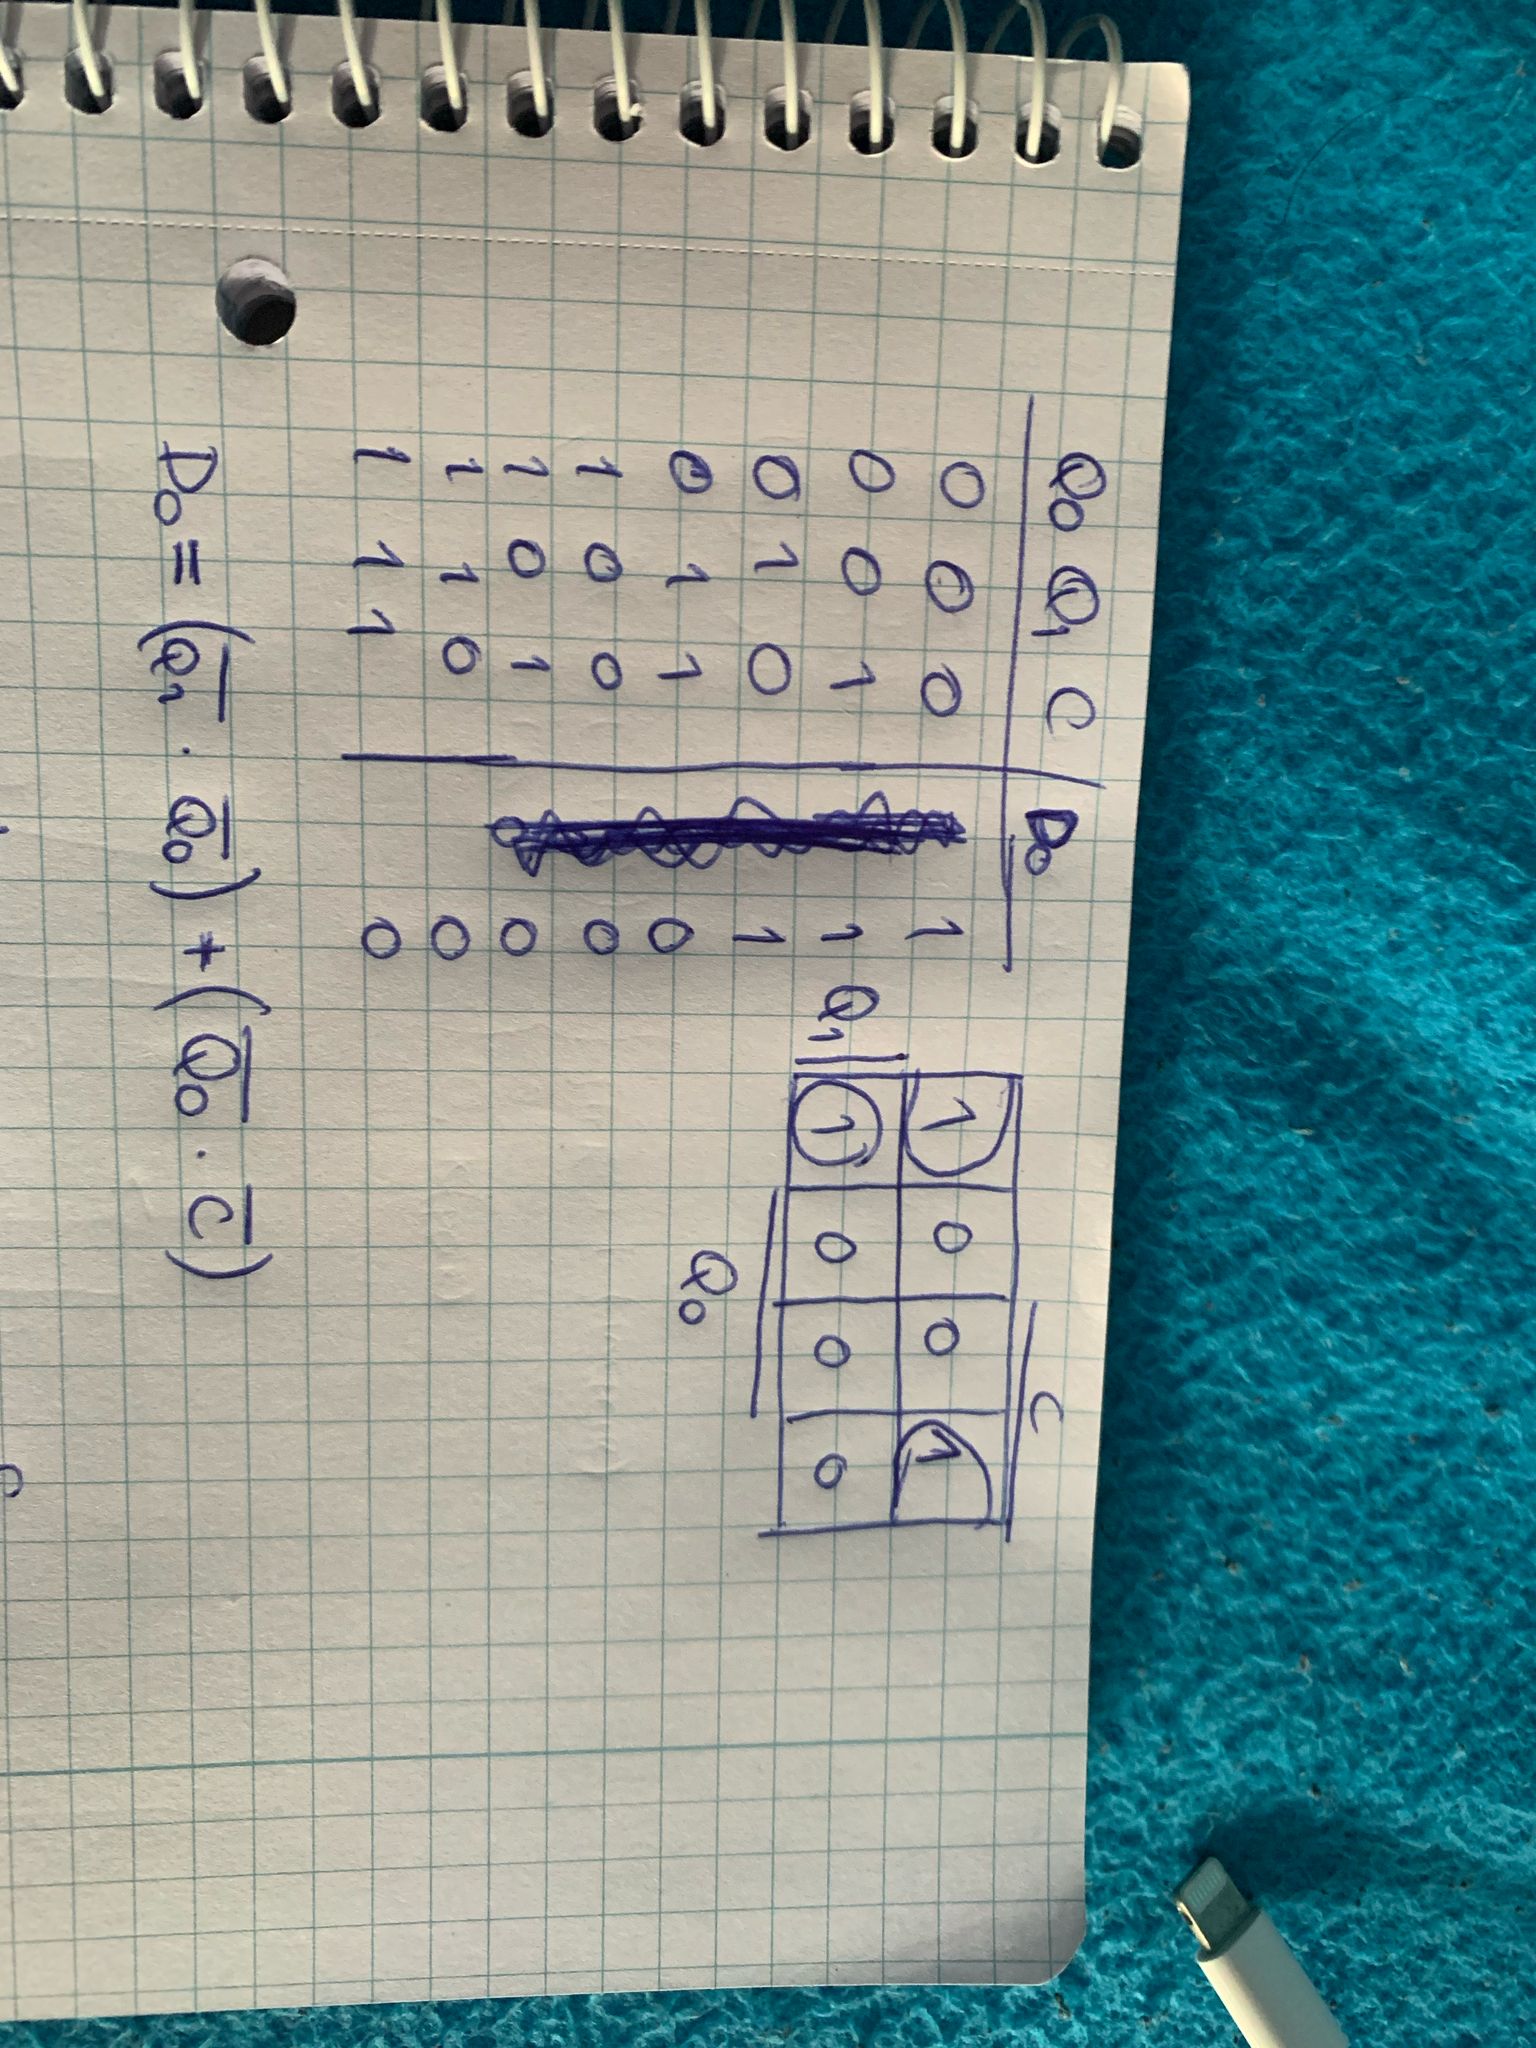 Q0 Q1 C D0
0 0 0 1
0 0 1 1
0 1 0 1
0 1 1 0
1 0 0 0
1 0 1 0
1 1 0 0
1 1 1 0
C
1 0 0 1
Q1 1 0 0 0
Q0
D0 = (Q̅1̅ · Q̅0̅) + (Q̅0̅ · C̅)